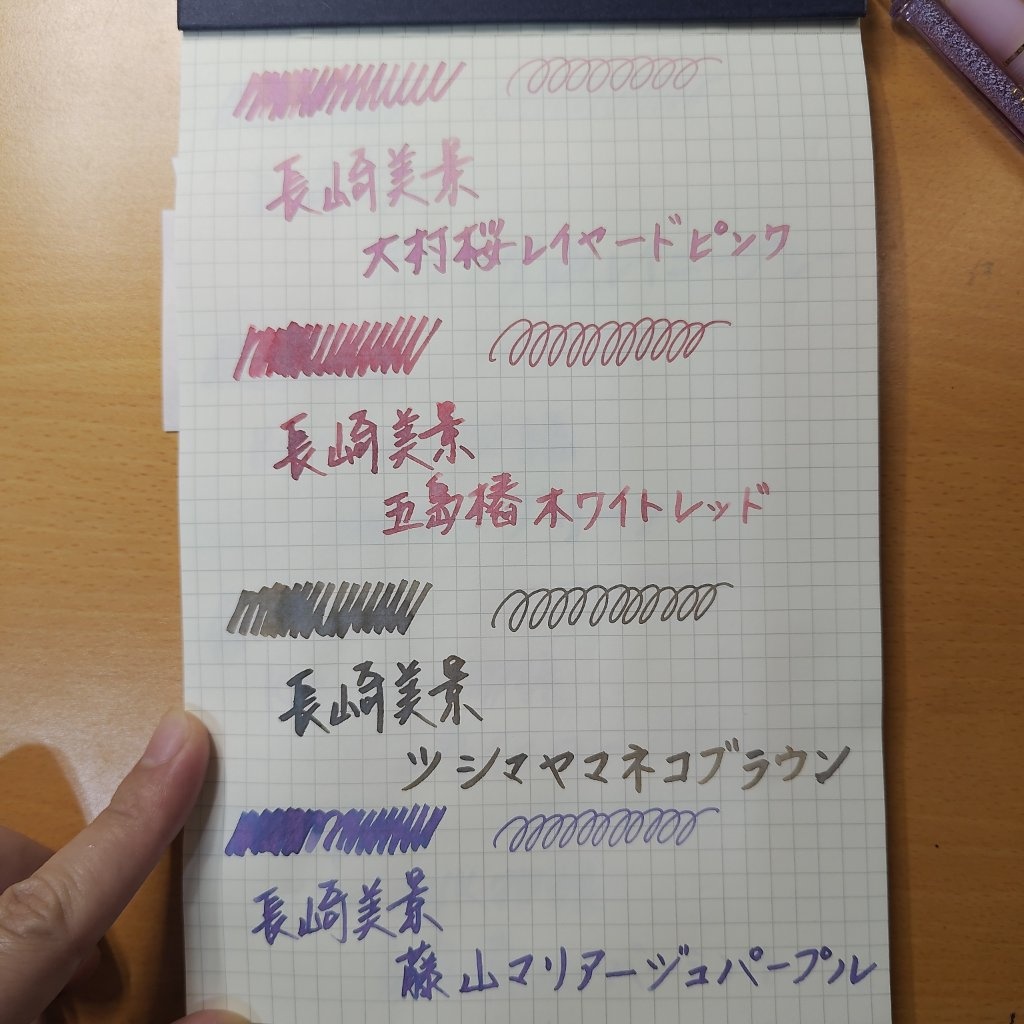 長崎美景
大村桜レイヤードピンク
長崎美景
五島椿ホワイトレッド
長崎美景
ツシマヤマネコブラウン
長崎美景
藤山マリアージュパープル